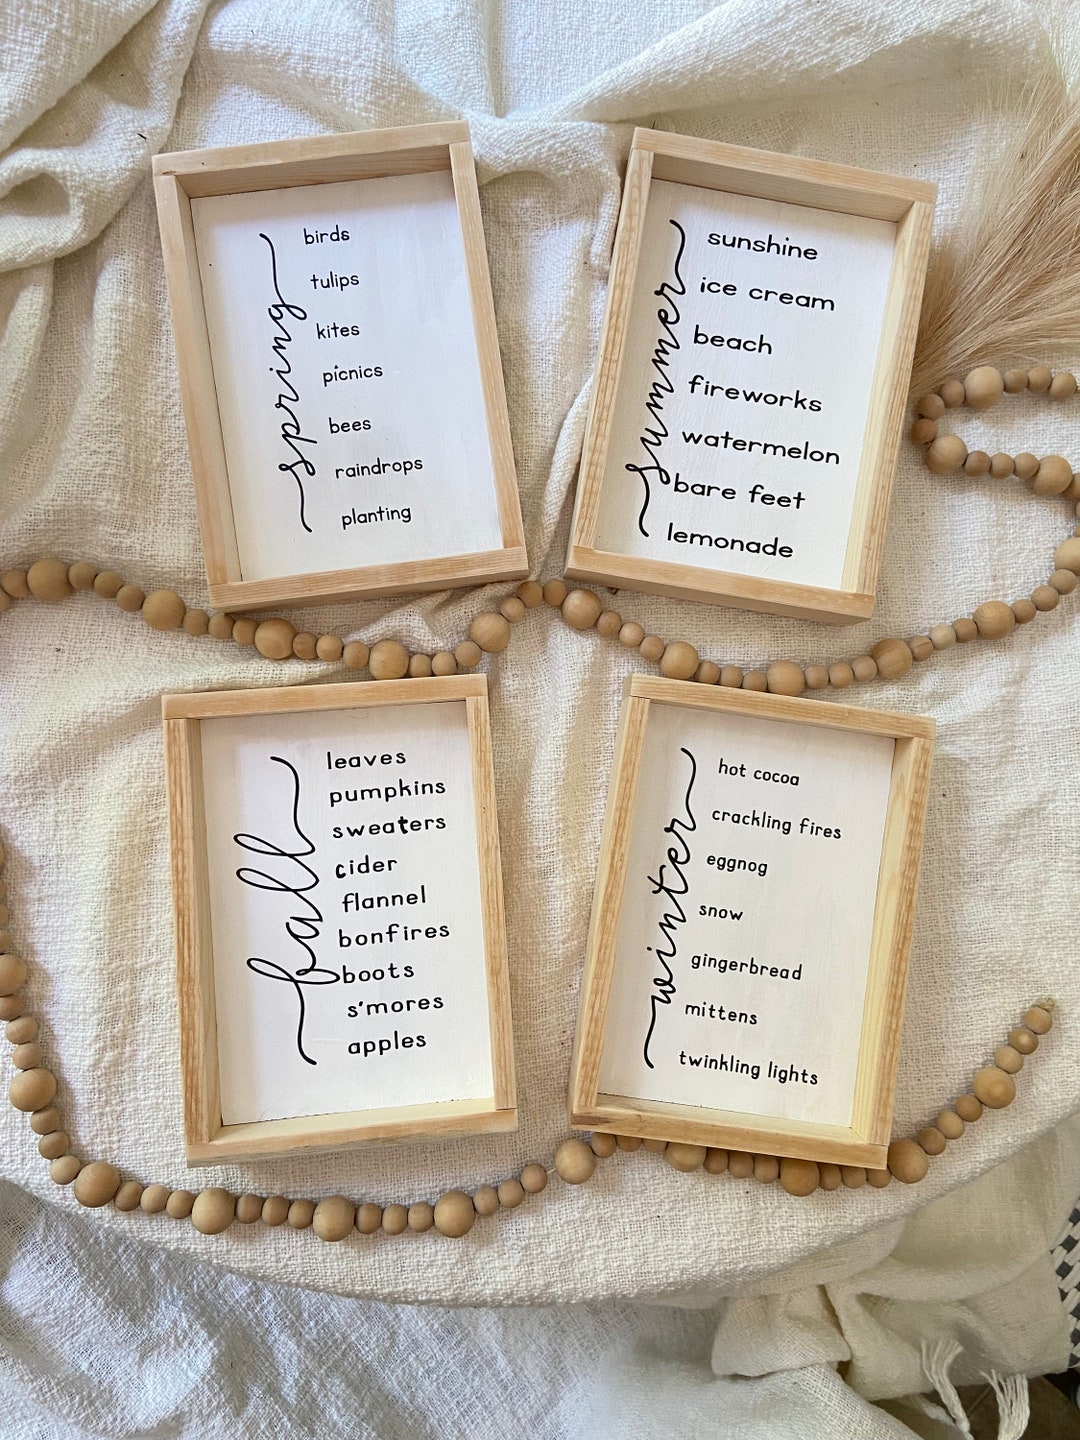 spring
birds
tulips
kites
picnics
bees
raindrops
planting
summer
sunshine
ice cream
beach
fireworks
watermelon
bare feet
lemonade
fall
leaves
pumpkins
sweaters
cider
flannel
bonfires
boots
s'mores
apples
winter
hot cocoa
crackling fires
eggnog
snow
gingerbread
mittens
twinkling lights